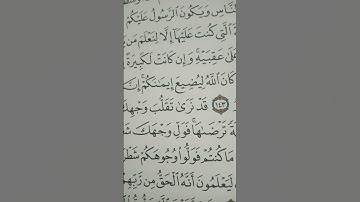 ٱلنَّاسِ وَيَكُونَ ٱلرَّسُولُ عَلَيْكُمْ
ٱلَّتِى كُنتَ عَلَيْهَآ إِلَّا لِنَعْلَمَ مَن
عَلَىٰ عَقِبَيْهِ ۚ وَإِن كَانَتْ لَكَبِيرَةً
كَانَ ٱللَّهُ لِيُضِيعَ إِيمَٰنَكُمْ ۚ إِنَّ
١٤٣ قَدْ نَرَىٰ تَقَلُّبَ وَجْهِكَ
تَرْضَىٰهَا ۚ فَوَلِّ وَجْهَكَ شَطْرَ
مَا كُنتُمْ فَوَلُّوا۟ وُجُوهَكُمْ شَطْرَ
لَيَعْلَمُونَ أَنَّهُ ٱلْحَقُّ مِن رَّبِّهِمْ